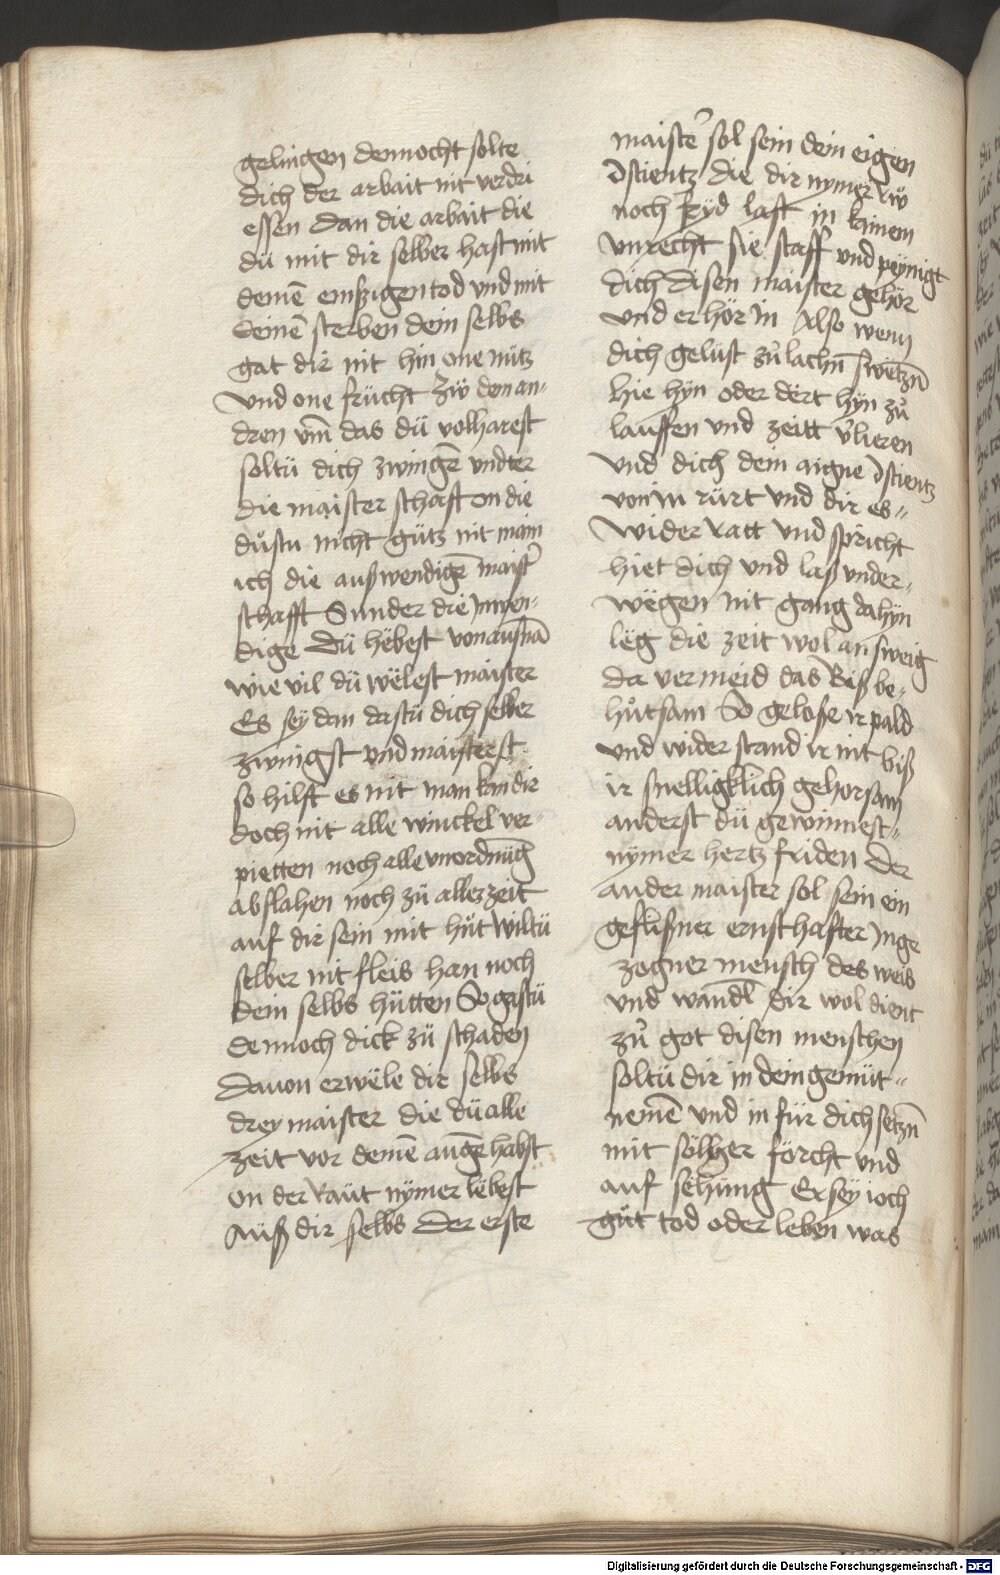 gelingen dennocht solte
dich der arbait nit verdri
essen dan die arbait die
dü mit dir selber hast mit
deinē emßigen tod vnd mit
deinē sterben dein selbs
gat dir nit hin one nütz
vnd one frücht Zw̎ dem an-
dren vm̄ das dü volharest
soltü dich zwingē vndter
die maister schafft on die
důstu nicht gütz nit main
ich die außwendigē maist̓
schafft Sunder die Inwen-
dige Dü hëbest von
wie vil dü wëlest maister
Es sey dan dastü dich selber
zwingst vnd maisterst
so hilft es nit man kan dir
doch nit alle winckel ver-
pietten noch alle vnordnūg
abslahen noch zü aller zeit
auf dir sein mit hůt wiltü
selber nit fleis han noch
dein selbs hütten So gastü
dennoch dick zü schaden
dauon erwële dir selbs
drey maister die dü alle
zeit vor deinē augē habst
on der Raüt nÿmer lëbest
auß dir selbs der erste
maist̓e sol sein dein eigen
Ɔscientz die dir nymer rw̎
noch frÿd last in kainem
vnrecht sie straff vnd peÿnigt
dich disen maister gehör
vnd erhör In Also wenn
dich gelüst zů lachn̄ swëtzn̄
hie hÿn oder dërt hÿn zů
lauffen vnd zeitt v̓lieren
vnd dich dein aigne Ɔscientz
von Im rürt vnd dir es-
wider ratt vnd spricht
hiet dich vnd laß vnder-
wëgen nit gang dahÿn
lëg die zeit wol an sweig
da vermeid das Biß be-
hůtsam So gelose ir pald
vnd wider stand ir nit biß
ir snelligklich gehorsam
anderst dü gewinnest-
nÿmer hertz friden der
ander maister sol sein ein
geflißner ernsthafter Inge
zogner mensch des weis
vnd wandl dir wol dient
zů got disen menschen
soltü dir in dein gemüt-
nemē vnd in für dich setzn̄
mit sölher förcht vnd
auf sehüng Er seÿ ioch
gůt tod oder leben was
Digitalisierung gefördert durch die Deutsche Forschungsgemeinschaft - DFG